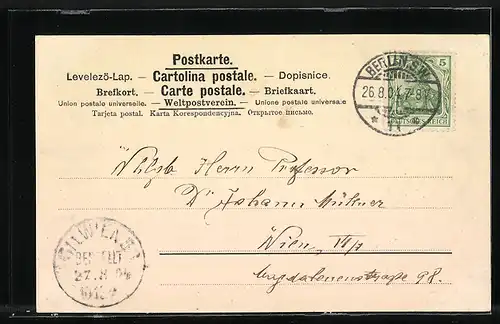 Postkarte.
Levelező-Lap. — Cartolina postale. — Dopisnice.
Brefkort. — Carte postale. — Briefkaart.
Union postale universelle. — Weltpostverein. — Unione postale universale
Tarjeta postal. Karta Korespondencyjna. Открытое письмо.
BERLIN S.W.
26.8.04. 7-8N.
* 11
5
DEUTSCHES REICH
Wohlgb. Herrn Professor
Dr Johann
Wien IV/1
Magdalenenstraße 98.
WIEN
BESTELLT
27.8.04